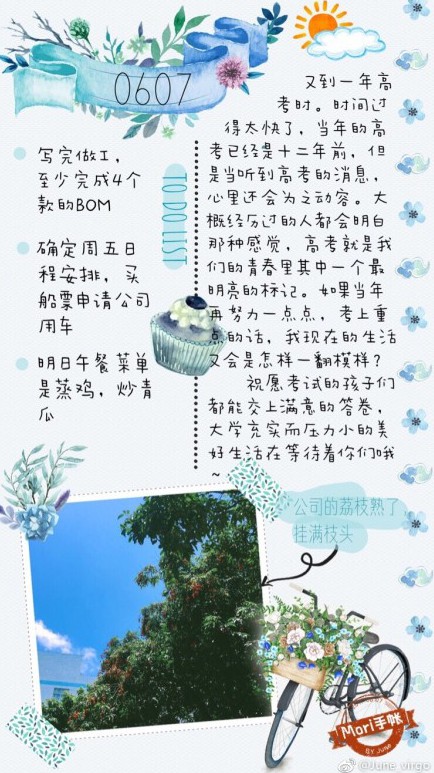 0607
写完做工，
至少完成4个
款的BOM
确定周五日
程安排，买
船票申请公司
用车
明日午餐菜单
是蒸鸡，炒青
瓜
TO DO LIST
又到一年高
考时。时间过
得太快了，当年的高
考已经是十二年前，但
是当听到高考的消息，
心里还会为之动容。大
概经历过的人都会明白
那种感觉，高考就是我
们的青春里其中一个最
明亮的标记。如果当年
再努力一点点，考上重
点的话，我现在的生活
又会是怎样一翻模样？
祝愿考试的孩子们
都能交上满意的答卷，
大学充实而压力小的美
好生活在等待着你们哦
~
公司的荔枝熟了
挂满枝头
Mori手帐
BY June
@June_virgo